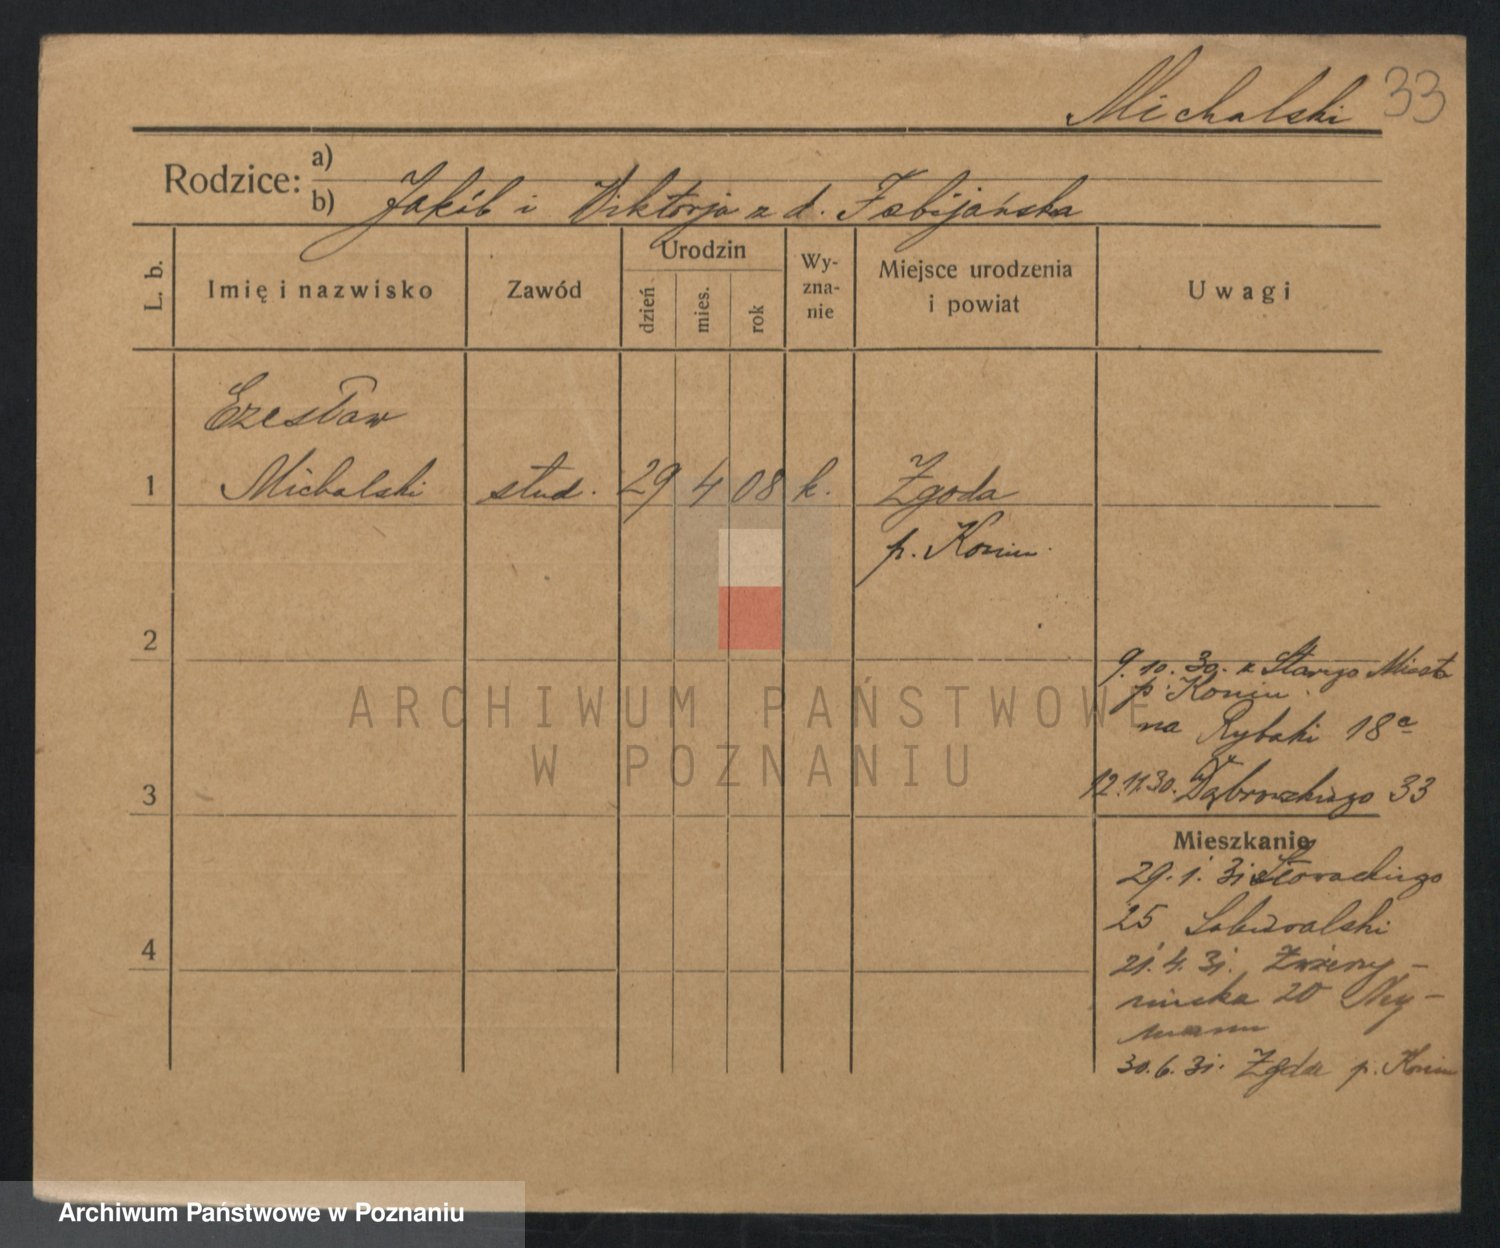 Michalski 33
Rodzice:
a)
b) Jakób i Wiktorja z d. Fabijańska
L. b.
Imię i nazwisko
Zawód
Urodzin
dzień
mies.
rok
Wy-
zna-
nie
Miejsce urodzenia
i powiat
Uwagi
Czesław
1 Michalski stud. 29 4 08 k. Zgoda
p. Konin
2
9.10.30. z Starego Miasta
p. Konin
na Rybaki 18a
12.11.30. Dąbrowskiego 33
3
Mieszkanie
29.1.31 Słowackiego
25
4
21.4.31. Zwierzy-
niecka 20 Ney-
mann
30.6.31. Zgda p. Konin
ARCHIWUM PAŃSTWOWE
W POZNANIU
Archiwum Państwowe w Poznaniu